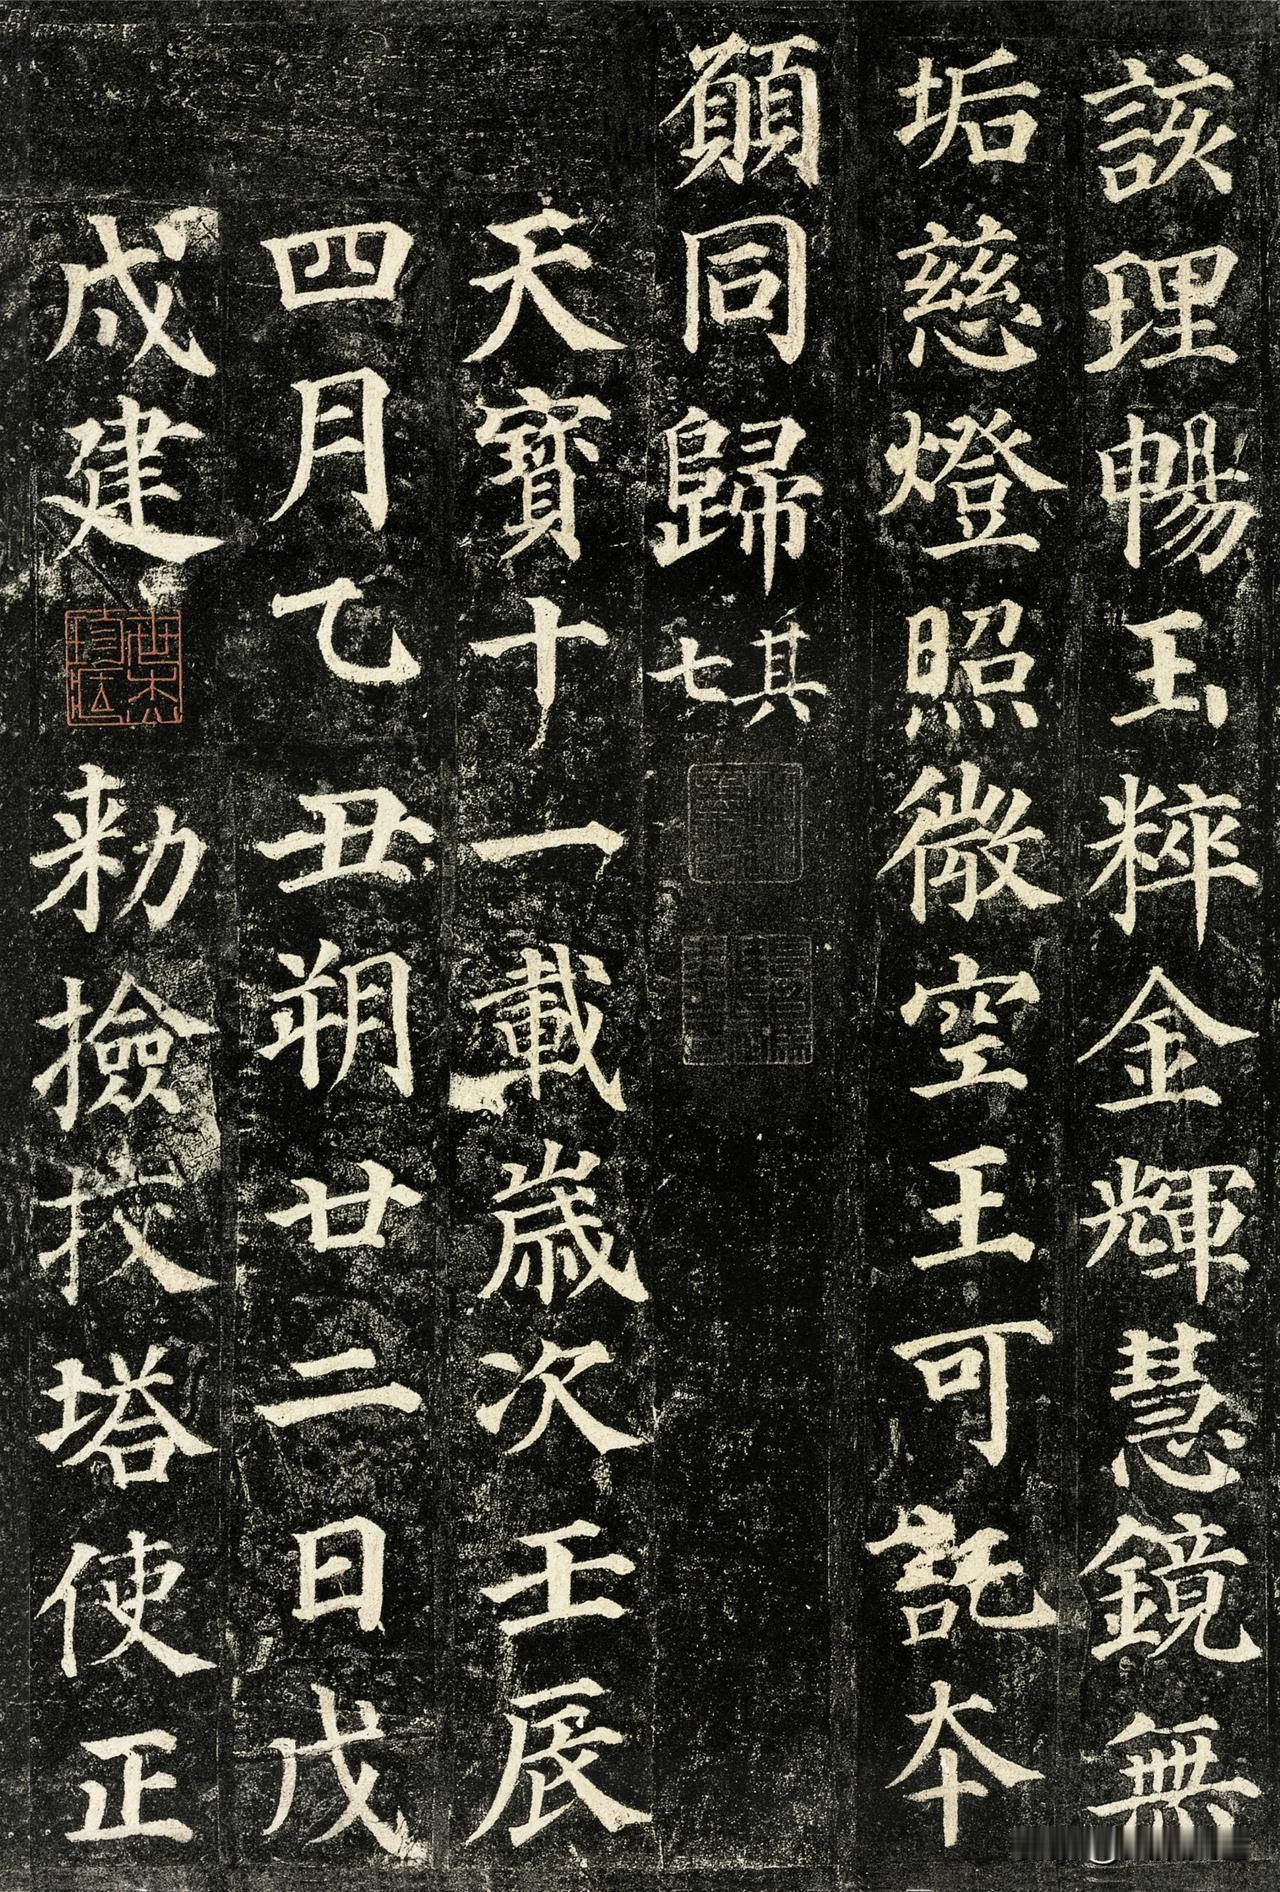 該理暢玉粹金輝慧鏡無
垢慈燈照微空王可託本
願同歸其七
天寶十一載歲次壬辰
四月乙丑朔廿二日戊
戌建
勅撿挍塔使正